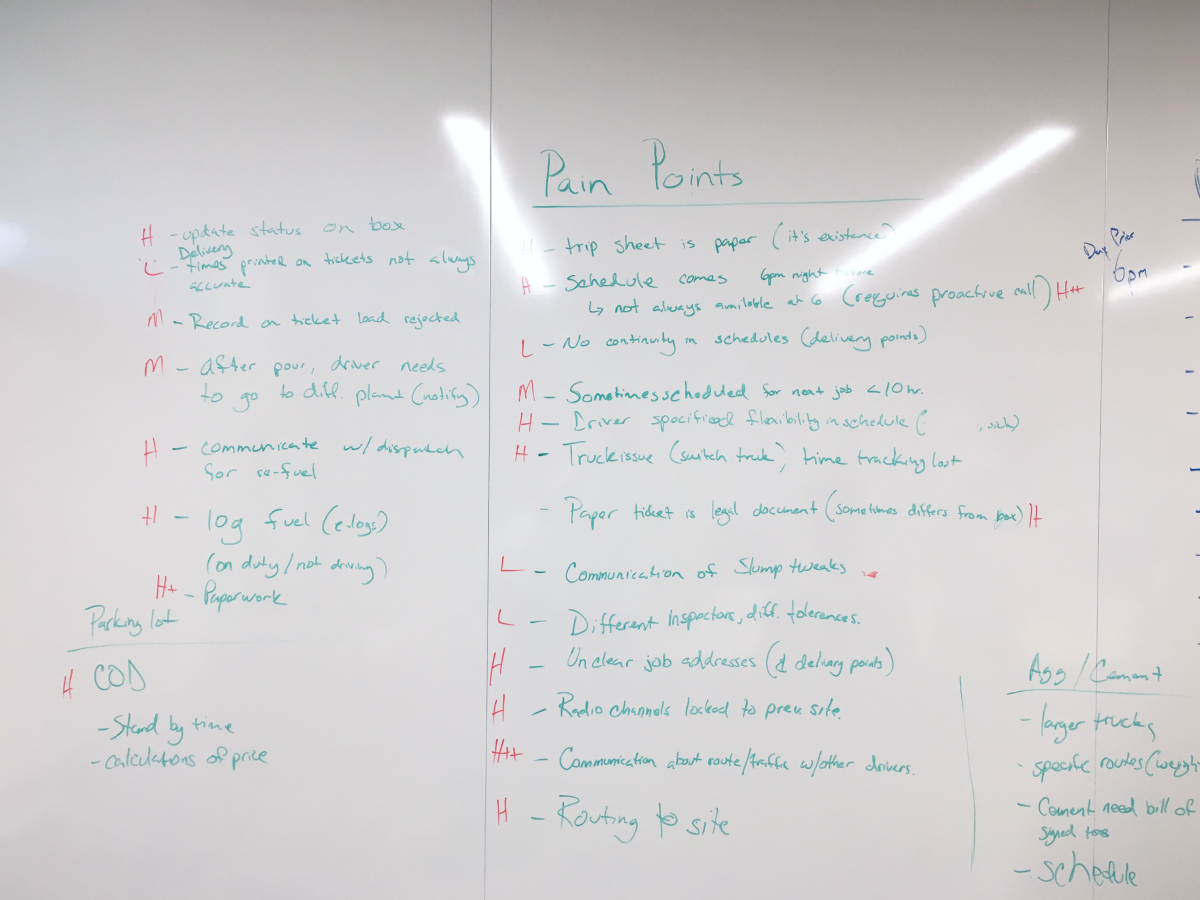 Pain Points
H - update status on box
Delivery
L - times printed on tickets not always
accurate
M - Record on ticket load rejected
M - After pour, driver needs
to go to diff. plant (notify)
H - communicate w/ dispatch
for re-fuel
H - log fuel (e.logs)
(on duty/not driving)
H+ - Paperwork
Parking lot
H COD
- Stand by time
- calculations of price
H - trip sheet is paper (it's existence)
H - Schedule comes 6pm night before
↳ not always available at 6 (requires proactive call) H++
L - No continuity in schedules (delivery points)
M - Sometimes scheduled for next job <10hr.
H - Driver specified flexibility in schedule ( , sick)
H - Truck issue (switch truck), time tracking lost
- Paper ticket is legal document (sometimes differs from box) H
L - Communication of Slump tweaks
L - Different Inspectors, diff. tolerences.
H - Unclear job addresses (& delivery points)
H - Radio channels locked to prev. site.
H++ - Communication about route/traffic w/other drivers.
H - Routing to site
Day Prior
6pm
Agg/Cement
- larger trucks
- specific routes (weight
- Cement need bill of
signed
- schedule